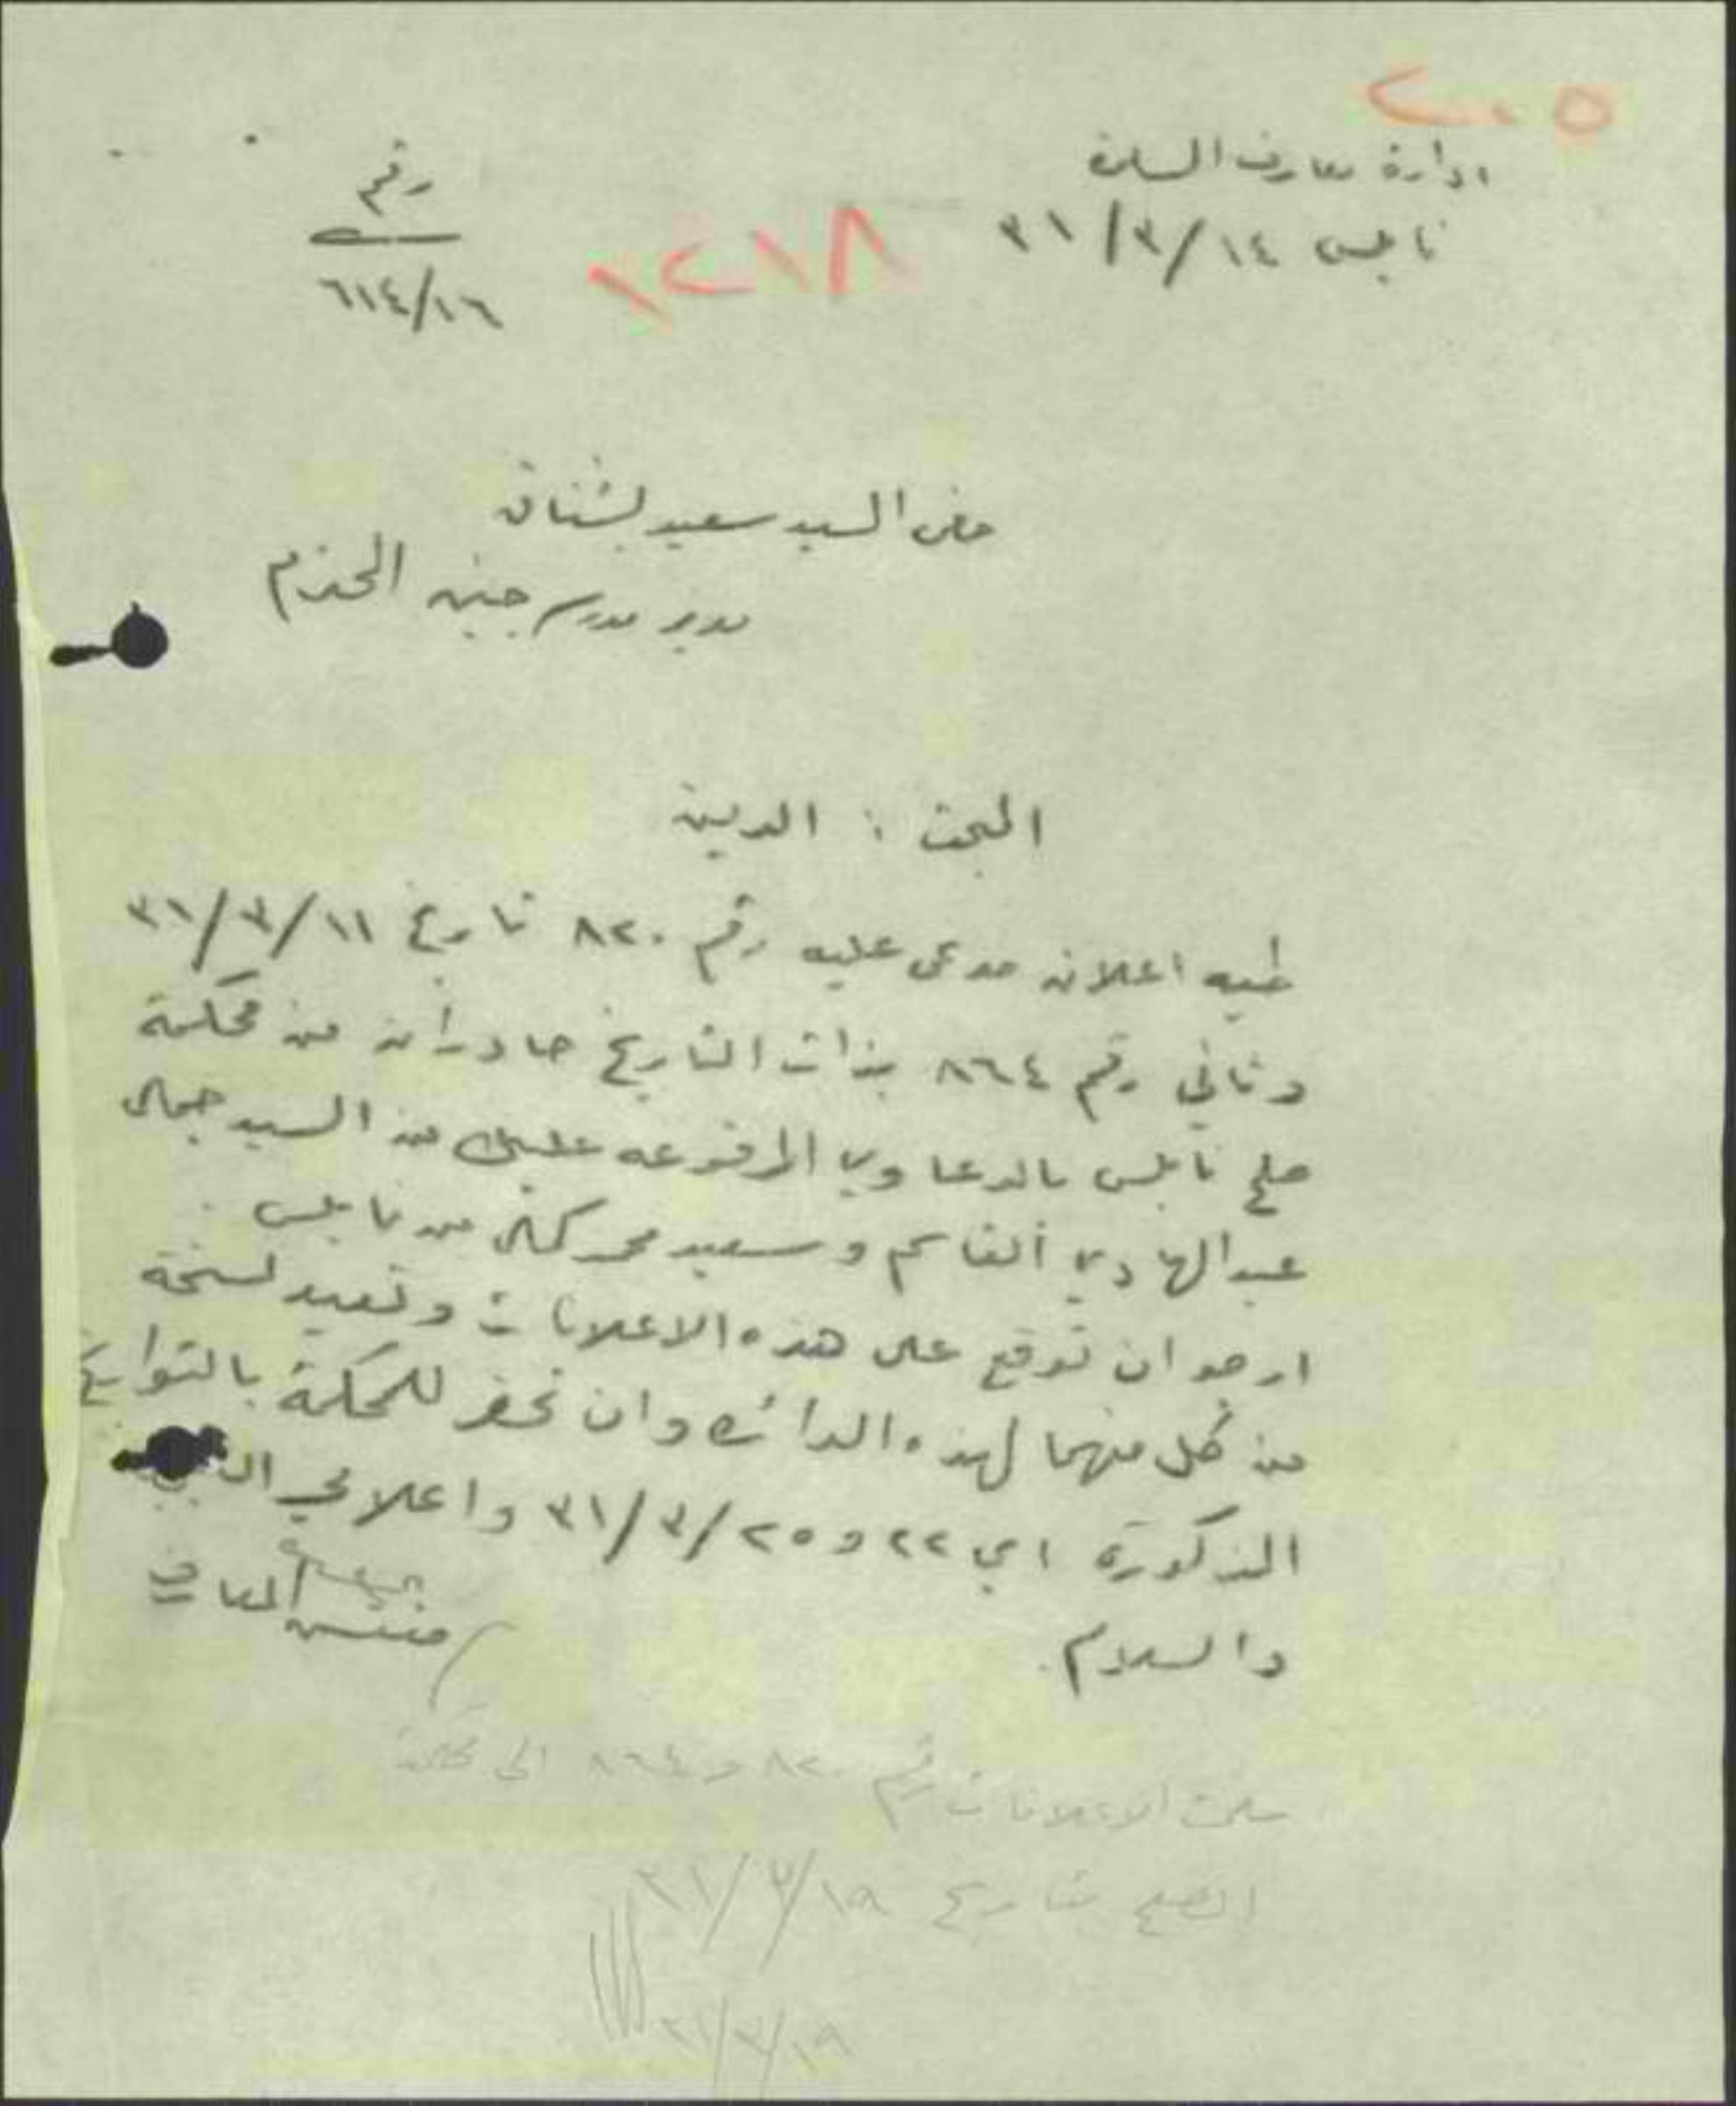 ادارة معارف السامرة
نابلس ١٤/٣/٣١
رقم
٦١٤/١٦
حضرة السيد سعيد بشناق
مدير مدرسة جنين المحترم
البحث : الدين
طيه اعلان مدعى عليه رقم ٨٢٠ تاريخ ١١/٣/٣١
وثاني رقم ٨٦٤ بذات التاريخ صادران من محكمة
صلح نابلس بالدعاوي المرفوعه عليك من السيد جمال
عبد الهادي القاسم وسعيد محمد كمال من نابلس .
ارجو ان توقع على هذه الاعلانات وتعيد نسخة
من كل منهما لهذه الدائرة وان تحضر للمحكمة بالتواريخ
المذكورة اي ٢٢ و ٢٥/٣/٣١ واعلامي
والسلام .
مفتش المعارف
سلمت الاعلانات رقم ٨٢٠ و ٨٦٤ الى محكمة
الصلح بتاريخ ١٩/٣/٣١
١٩/٣/٣١